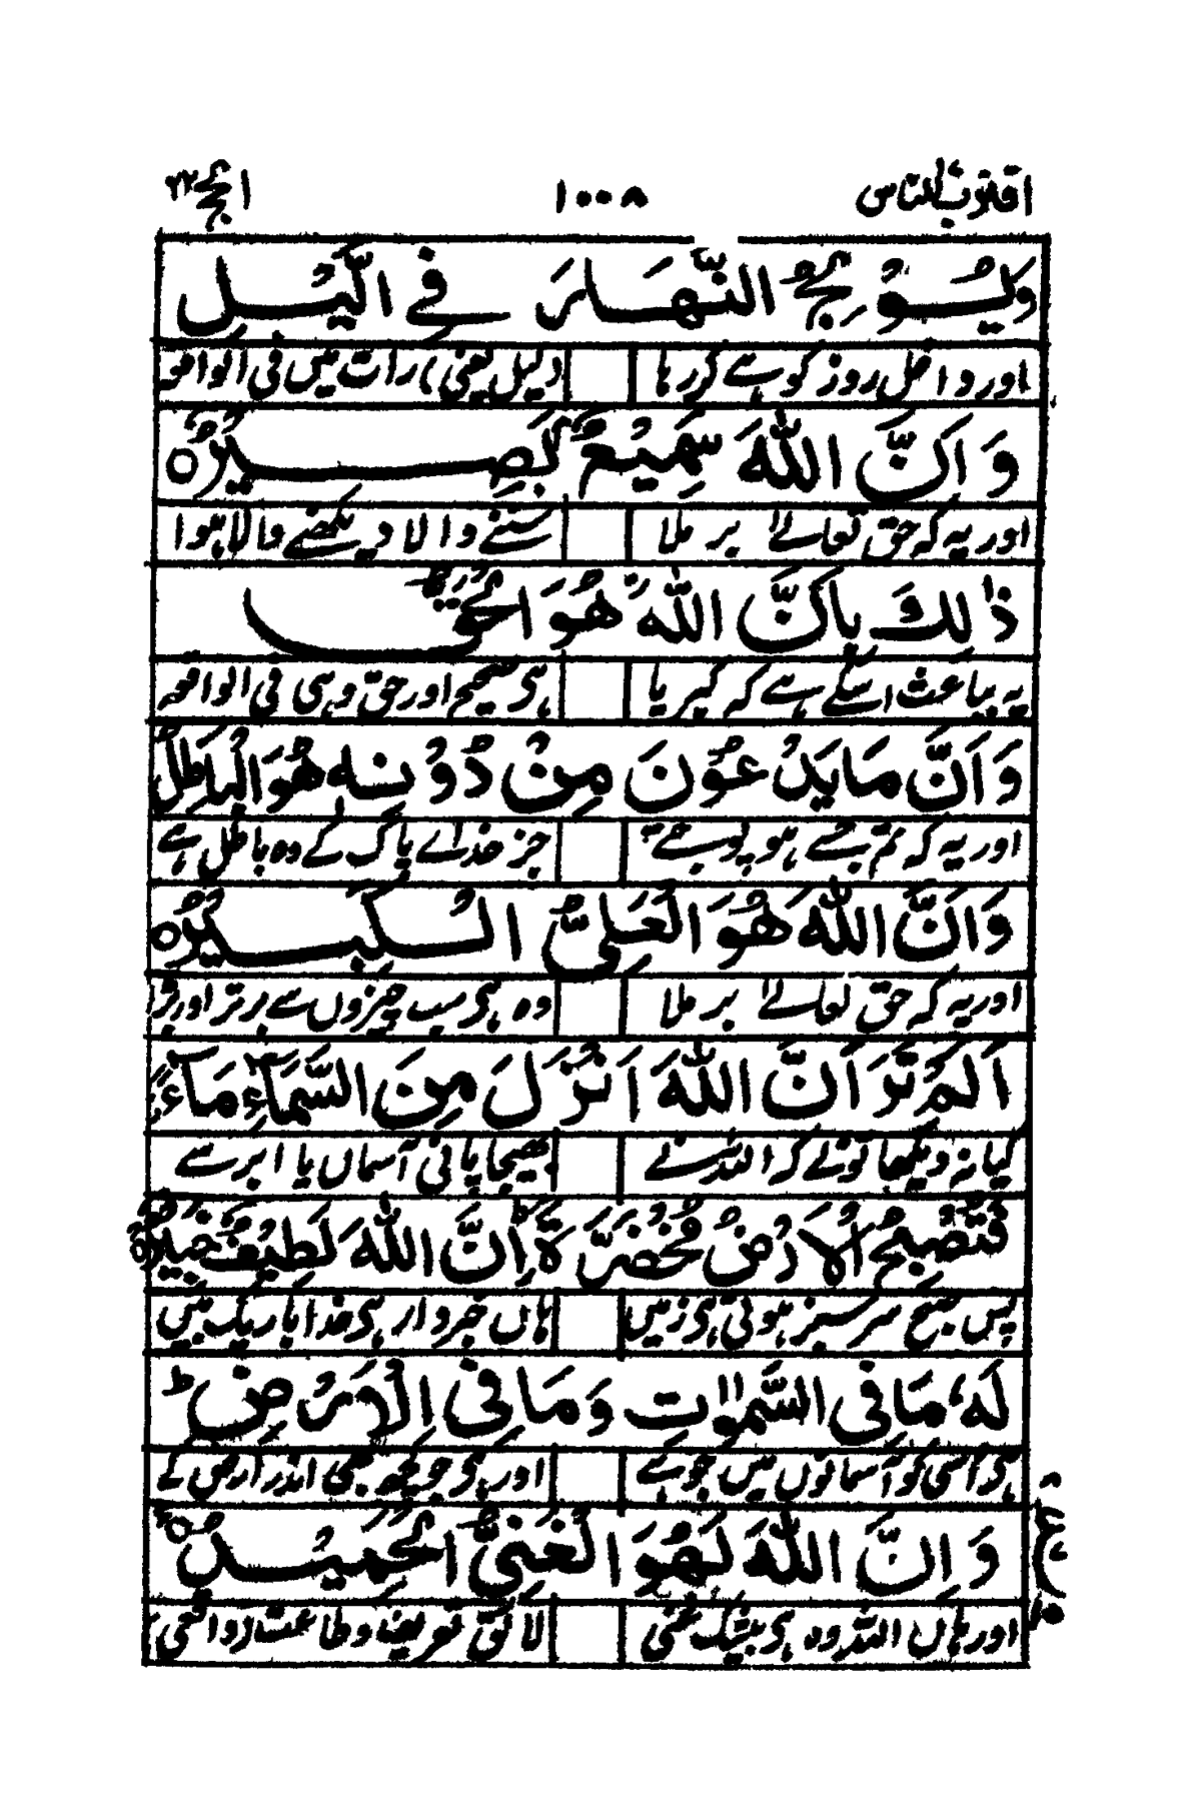 اقترب للناس ١٠٠٨ الحج ٢٢
وَيُوْلِجُ النَّهَارَ فِي الَّيْلِ
اور داخل روز کو ہے کر رہا (لیل یعنی) رات میں فی الواقعہ
وَاَنَّ اللّٰهَ سَمِيْعٌۢ بَصِيْرٌ ○
اور یہ کہ حق تعالےٰ بر ملا سننے والا دیکھنے والا ہوا
ذٰلِكَ بِاَنَّ اللّٰهَ هُوَ الْحَقُّ
یہ بباعث اسکے ہے کہ کبریا ہی صحیح اور حق وہی فی الواقعہ
وَاَنَّ مَا يَدْعُوْنَ مِنْ دُوْنِهٖ هُوَ الْبَاطِلُ
اور یہ کہ تم جسے ہو پوجتے جز خدائے پاک کے وہ باطل ہے
وَاَنَّ اللّٰهَ هُوَ الْعَلِيُّ الْكَبِيْرُ ○
اور یہ کہ حق تعالےٰ بر ملا وہ ہی سب چیزوں سے برتر اور بڑا
اَلَمْ تَرَ اَنَّ اللّٰهَ اَنْزَلَ مِنَ السَّمَآءِ مَآءً
کیا نہ دیکھا تونے کہ اللہ نے بھیجا پانی آسماں یا ابر سے
فَتُصْبِحُ الْاَرْضُ مُخْضَرَّةً ؕ اِنَّ اللّٰهَ لَطِيْفٌ خَبِيْرٌ ○
پس صبح سر سبز ہوتی ہی زمیں ہاں خبردار ہی خدا باریک بیں
لَهٗ مَا فِي السَّمٰوٰتِ وَمَا فِي الْاَرْضِ ؕ
ہی اسی کو آسمانوں میں جو ہے اور ہی جو کچھ بھی اندر ارض کے
وَاِنَّ اللّٰهَ لَهُوَ الْغَنِيُّ الْحَمِيْدُ ○
اور ہاں اللہ وہ ہی بیشک غنی لائق تعریف و طاعت واقعی
ع